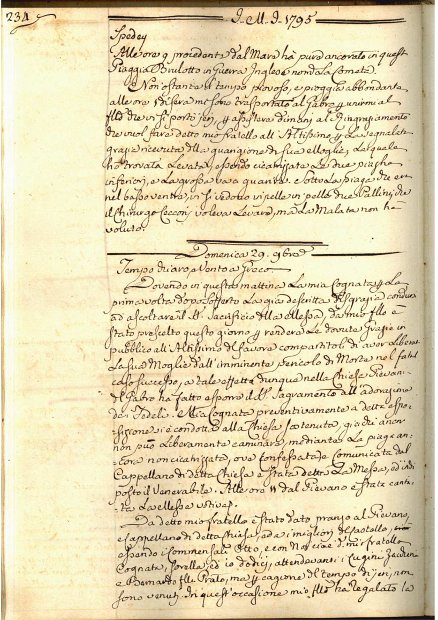 234 I. M. I. 1795
Spedey
Alle ore 9 procedente dal Mare hà pure ancorato in quest
Piaggia Brulotto in Guerra Inglese nom. la Cometa
Non ostante il tempo piovoso, e pioggia abbondante
alle ore di sera mi sono trasportato al Fabro unirmi al
di mani al Ringraziamento
che vuol fare detto mio fratello all' Altissimo La segnalata
grazia ricevuta della guarigione di sua Moglie, La quale
hò trovata Levata, essendo cicatrizzate Le due piaghe
inferiori, e La grossa và a quanto e sotto La piaga
nel basso ventre, in pelle due Pallini, che
il Chirurgo Cecconi voleva Levare, mà La Malata non hà
voluto.
Domenica 29. 9bre
Tempo chiaro, e Vento a Greco
Dovendo in questa mattina La mia Cognata La
prima volta dopo sofferto La già descritta disgrazia condursi
ad ascoltare il S. Sacrificio della Messa, da mio fllo è
stato prescelto questo giorno rendere Le dovute Grazie in
Pubblico all' Altissimo del favore compartitoli di aver Liberat
La sua Moglie dall' imminente pericolo di Morte nel fatal
caso successo, a tale effetto dunque nella Chiesa Pievani
del Fabro hà fatto esporre il SS. Sagramento all' adorazione
dei Fedeli. Mia Cognata preventivamente a detta espo-
sizione si è condotta alla Chiesa sostenuta, giacchè ancor
non può Liberamente caminare, mediante Le piaghe an-
cora non cicatrizzate, ove confessata, e comunicata dal
Cappellano di detta Chiesa è stata detta La Messa, ed indi
posto il Venerabile. Alle ore 11 dal Pievano è stata canta-
ta La Messa votiva.
Da detto mio fratello è stato dato pranzo al Pievano,
e Cappellano di detta Chiesa,
essendo i commensali Otto, e con Noi cioè d. mio fratello
Cognata, Sorella, ed io dodici, attendevansi i Cugini
e Bernardo Prato, ma a cagione del tempo di jeri, non
sono venuti. In quest' occasione mio fllo hà regalato La